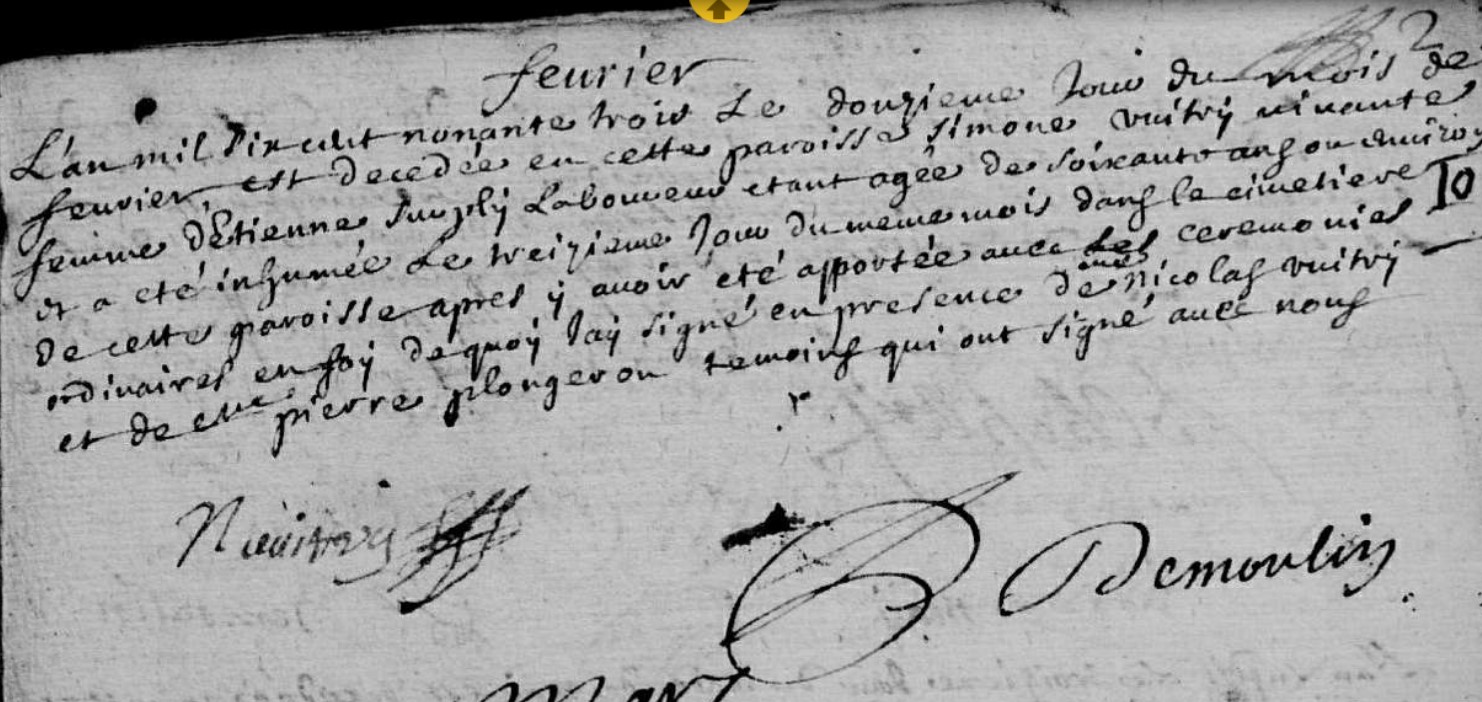 2
feurier
L'an mil six cent nonante trois le douzieme Jour du mois de
feurier, est decedée en cette paroisse simone vuitry viuante
femme d'Etienne Laboureur etant agée de soixante ans ou enuiron
et a eté inhumée le treizieme Jour du meme mois dans le cimetiere
De cette paroisse apres y auoir eté apportée auec les ceremonies
ordinaires en foy de quoy Jay signé en presence de Nicolas vuitry
et de pierre plongeron temoins qui ont signé auec nous
10
Demoulin
Mars